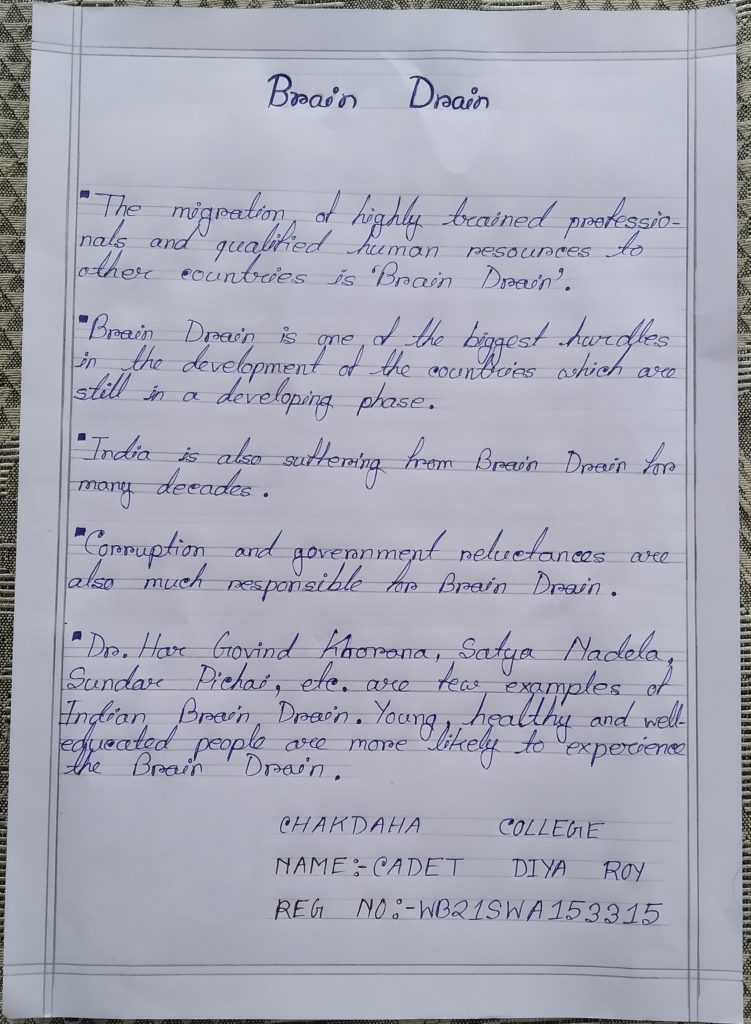 Brain Drain
▪The migration of highly trained professio-
nals and qualified human resources to
other countries is 'Brain Drain'.
▪Brain Drain is one of the biggest hurdles
in the development of the countries which are
still in a developing phase.
▪India is also suffering from Brain Drain for
many decades.
▪Corruption and government reluctances are
also much responsible for Brain Drain.
▪Dr. Har Govind Khorana, Satya Nadela,
Sundar Pichai, etc. are few examples of
Indian Brain Drain. Young, healthy and well-
educated people are more likely to experience
the Brain Drain.
CHAKDAHA COLLEGE
NAME:-CADET DIYA ROY
REG NO:-WB21SWA153315